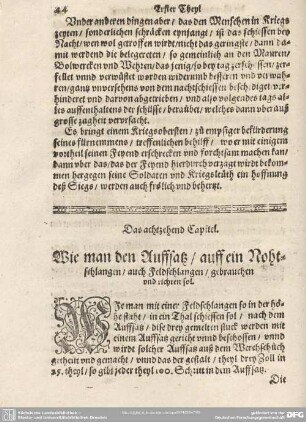 44 Erster Theyl
Vnder anderen dingen aber / das den Menschen in Kriegs
zeyten / sonderlichen schräcken eynfangt / ist das schiessen bey
Nacht / wen wol getroffen wirt / nicht das geringste / dann da-
mit werdend die belegerten / so gemeinlich an den Mauren /
Bolwercken vnd Wehren
fellet vnnd verwüstet worden widerumb besseren vnd
ren / gantz vnversehens von dem nachtschiessen
hinderet vnd darvon abgetriben / vnd also volgendes
les auffenthaltens der schilffe / beraubet / welches dann vber auß
grosse zagheit verursacht.
Es bringt einem Kriegsobersten / zu empfiger befürderung
seines fürnemmens / treffenlichen behülff / wo er mit einigem
vortheil seinen Feynd erschrecken vnd forchtsam machen kan /
dann vber das / das der Feyend hierdurch verzagt wirdt bekom-
men hergegen seine Soldaten vnd Kriegsleüth ein hoffnung
deß Siegs / werden auch frölich vnd behertzt.
Das achtzehend Capitel.
Wie man den Auffsatz / auff ein Noht-
schlangen / auch Feldschlangen / gebrauchen
vnd richten sol.
WIe man mit einer Feldschlangen so in der hö-
he staht / in ein Thal schiessen sol / nach dem
Auffsatz / dise drey gemelten stuck werden mit
einem Auffsatz gericht vnnd beschossen / vnnd
wirdt solcher Auffsatz auß dem Werchschüch
getheilt vnd gemacht / vnnd das der gestalt / theyl drey Zoll in
25. theyl / so gibt jeder theyl 100. Schritt in dem Auffsatz.
Die